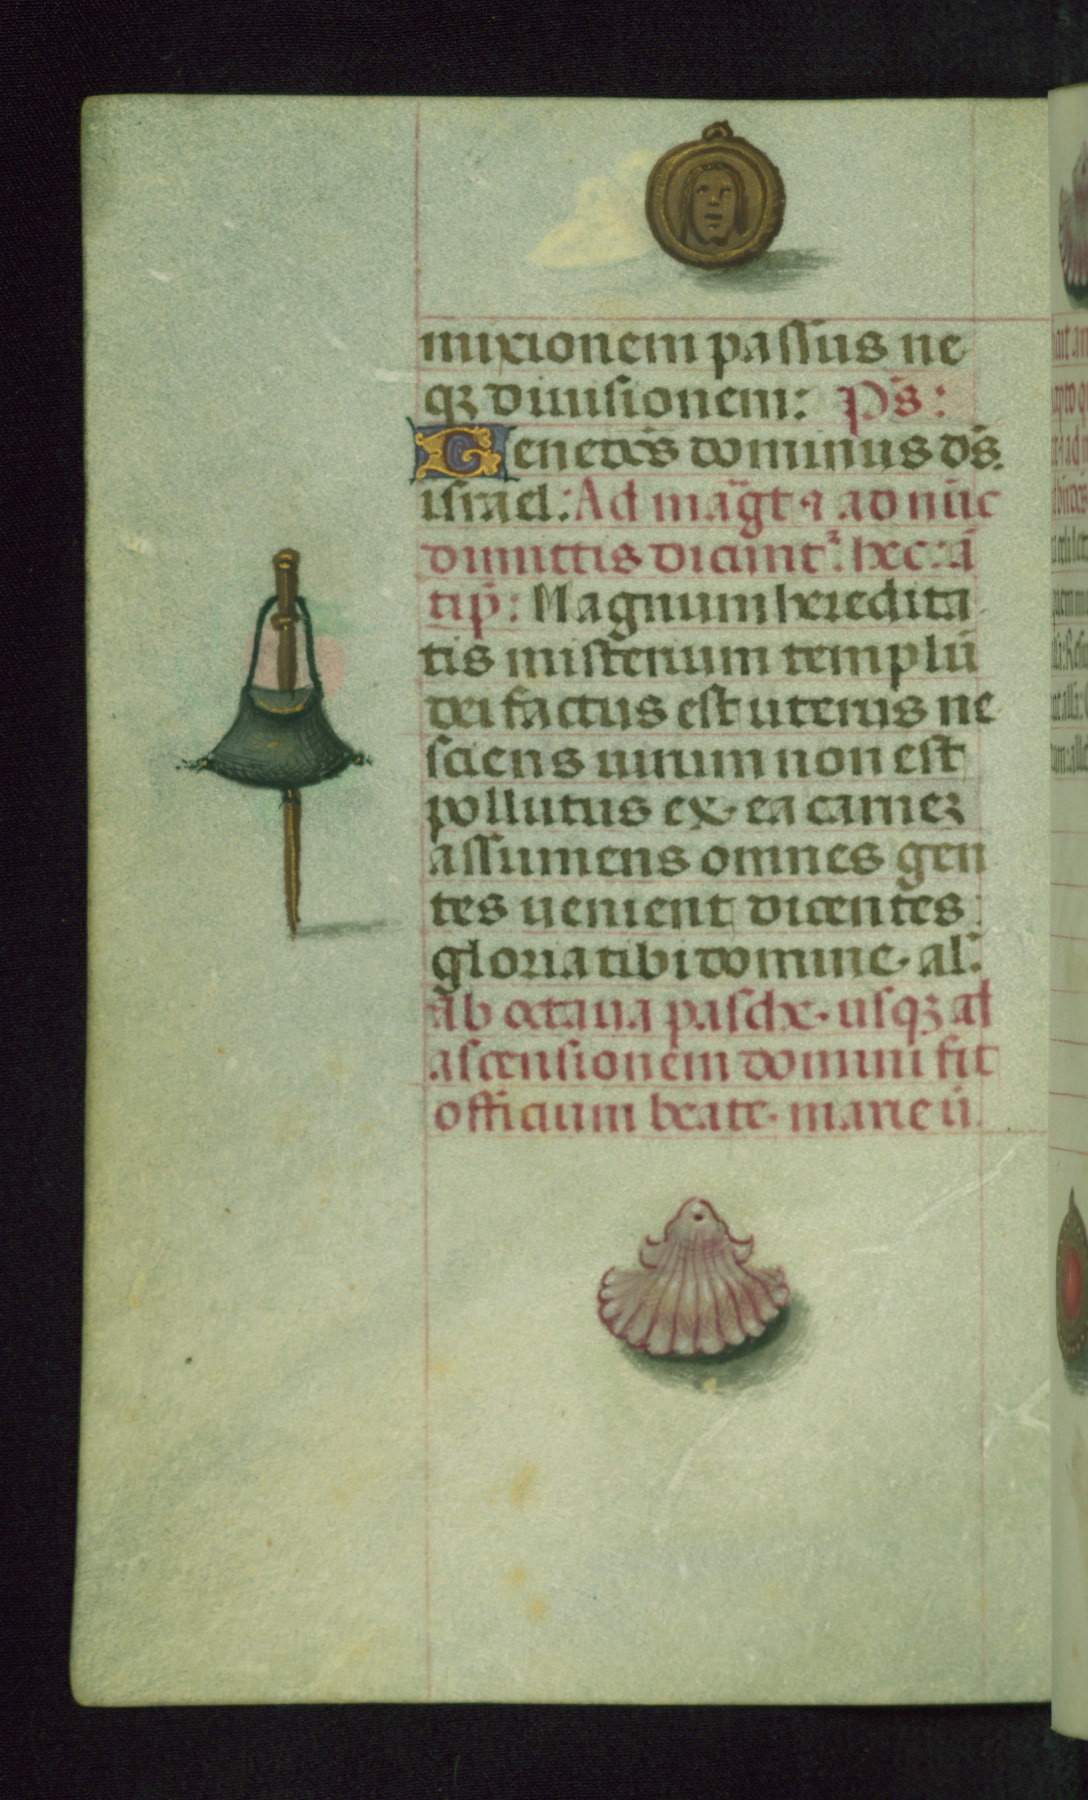 mixionem passus ne
qz diuisionem: Ps̄:
Genedc̄s dominus ds̄.
israel: Ad māgt ⁊ ad nūc
dimittis dicunt̉: hec: ā
tip̄: Magnum heredita
tis misterium templū
dei factus est uterus ne
sciens uirum non est
pollutus ex. ea carnez
assumens omnes gen
tes uenient dicentes:
gloria tibi domine. al̄:
ab octaua pasche. usqz ad
ascensionem domini fit
officium beate. marie ū.